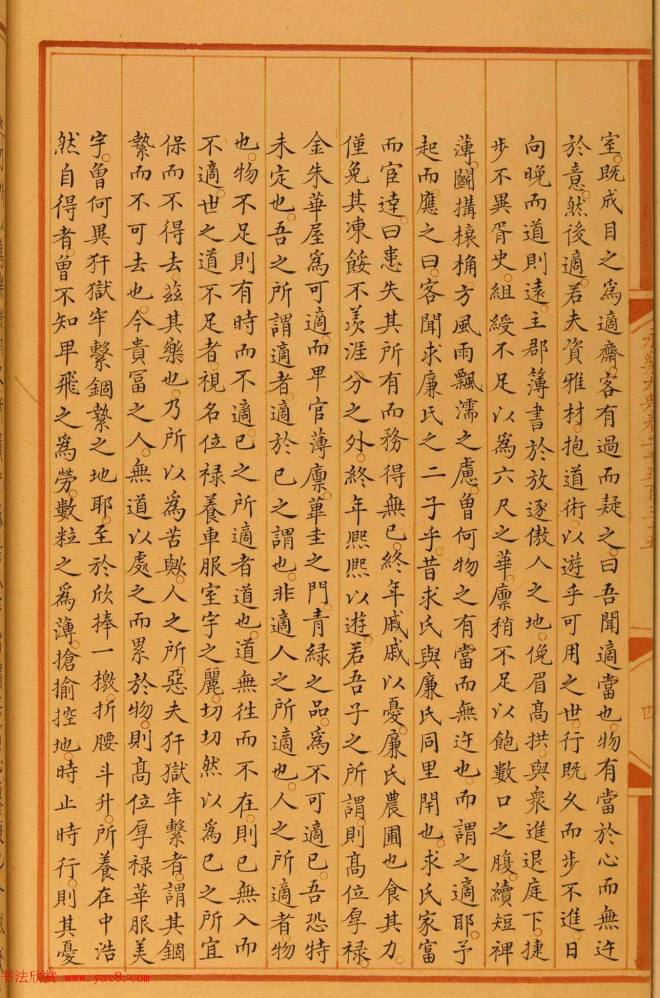 室。既成目之為適齋。客有過而疑之。曰吾聞適當也。物有當於心而無迕
於意。然後適。若夫資雅材。抱道術。以遊乎可用之世。行既久而步不進。日
向晚而道則遠。主郡簿書於放逐傲人之地。俛眉高拱。與衆進退庭下。捷
步不異胥史。組綬不足以為六尺之華。廩稍不足以飽數口之腹。續短裨
薄。關搆榱桷。方風雨飄濡之慮。曽何物之有當而無迕也。而謂之適耶。予
起而應之曰。客聞求廉氏之二子乎。昔求氏與廉氏同里閈也。求氏家富
而官達。曰患失其所有而務得無已。終年戚戚以憂。廉氏農圃也。食其力。
僅免其凍餒。不羨涯分之外。終年熈熈以遊。若吾子之所謂。則髙位厚祿。
金朱華屋為可適。而卑官薄廩。蓽圭之門。青緑之品。為不可適已。吾恐特
未定也。吾之所謂適者。適於已之謂也。非適人之所適也。人之所適者。物
也。物不足則有時而不適。已之所適者道也。道無徃而不在。則已無入而
不適。世之道不足者。視名位禄養車服室宇之麗。切切然以為已之所宜
保而不得去。茲其樂也。乃所以為苦歟。人之所惡夫犴獄牢繫者。謂其錮
縶而不可去也。今貴冨之人。無道以處之而累於物。則髙位厚禄華服美
宇。曽何異犴獄牢繫錮縶之地耶。至於欣捧一檄。折腰斗升。所養在中。浩
然自得者。曽不知卑飛之為勞。數粒之為薄。搶揄控地。時止時行。則其憂
永樂大典卷二千五百三十五
四
书法欣赏 www.yac8.com